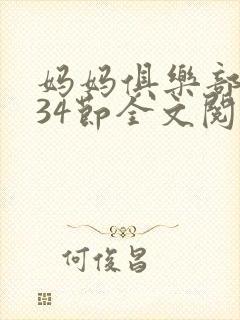 妈妈俱樂部
34節全文閱
何俊昌